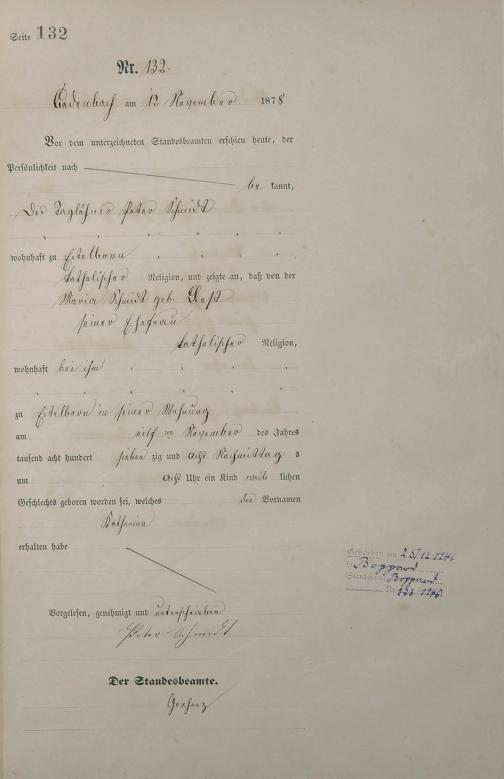 Seite 132
Nr. 132.
Cadenbach am 12 November 1878
Vor dem unterzeichneten Standesbeamten erschien heute, der
Persönlichkeit nach
be kannt,
Der Taglöhner Peter Schmidt
wohnhaft zu Eitelborn
katholischer Religion, und zeigte an, daß von der
Maria Schmidt geb.
seiner Ehefrau
katholischer Religion,
wohnhaft bei ihm
zu Eitelborn in seiner Wohnung
am eilf ten November des Jahres
tausend acht hundert sieben zig und acht Nachmittag s
um acht Uhr ein Kind weib lichen
Geschlechts geboren worden sei, welches den Vornamen
Katharina
erhalten habe
Vorgelesen, genehmigt und unterschrieben
Peter Schmidt
Der Standesbeamte.
Gestorben am 25/12.
in Boppard
Standesamt Boppard
Nr.